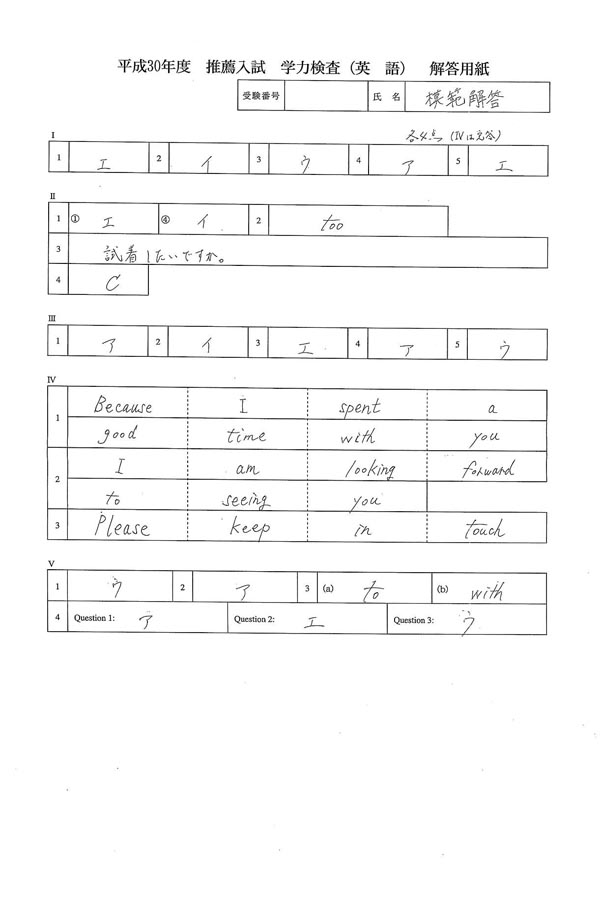 平成30年度 推薦入試 学力検査(英 語) 解答用紙
受験番号 氏 名 模範解答
各4点 (IVは完答)
I
1 エ 2 イ 3 ウ 4 ア 5 エ
II
1 ① エ ④ イ 2 too
3 試着したいですか。
4 C
III
1 ア 2 イ 3 エ 4 ア 5 ウ
IV
1 Because I spent a
good time with you
2 I am looking forward
to seeing you
3 Please keep in touch
V
1 ウ 2 ア 3 (a) to (b) with
4 Question 1: ア Question 2: エ Question 3: ウ